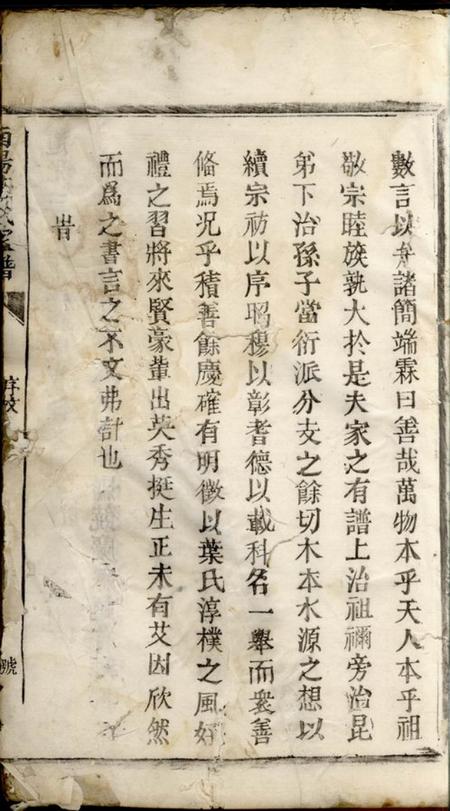 數言以弁諸簡端霖曰善哉萬物本乎天人本乎祖
敬宗睦族孰大於是夫家之有譜上治祖禰旁治昆
弟下治孫子當衍派分支之餘切木本水源之想以
續宗祊以序昭穆以彰耆德以載科名一舉而衆善
偹焉况乎積善餘慶確有明徵以葉氏淳樸之風好
禮之習將來賢豪軰出英秀挺生正未有艾因欣然
而爲之書言之不文弗計也
旹
南陽葉氏宗譜
序文
號